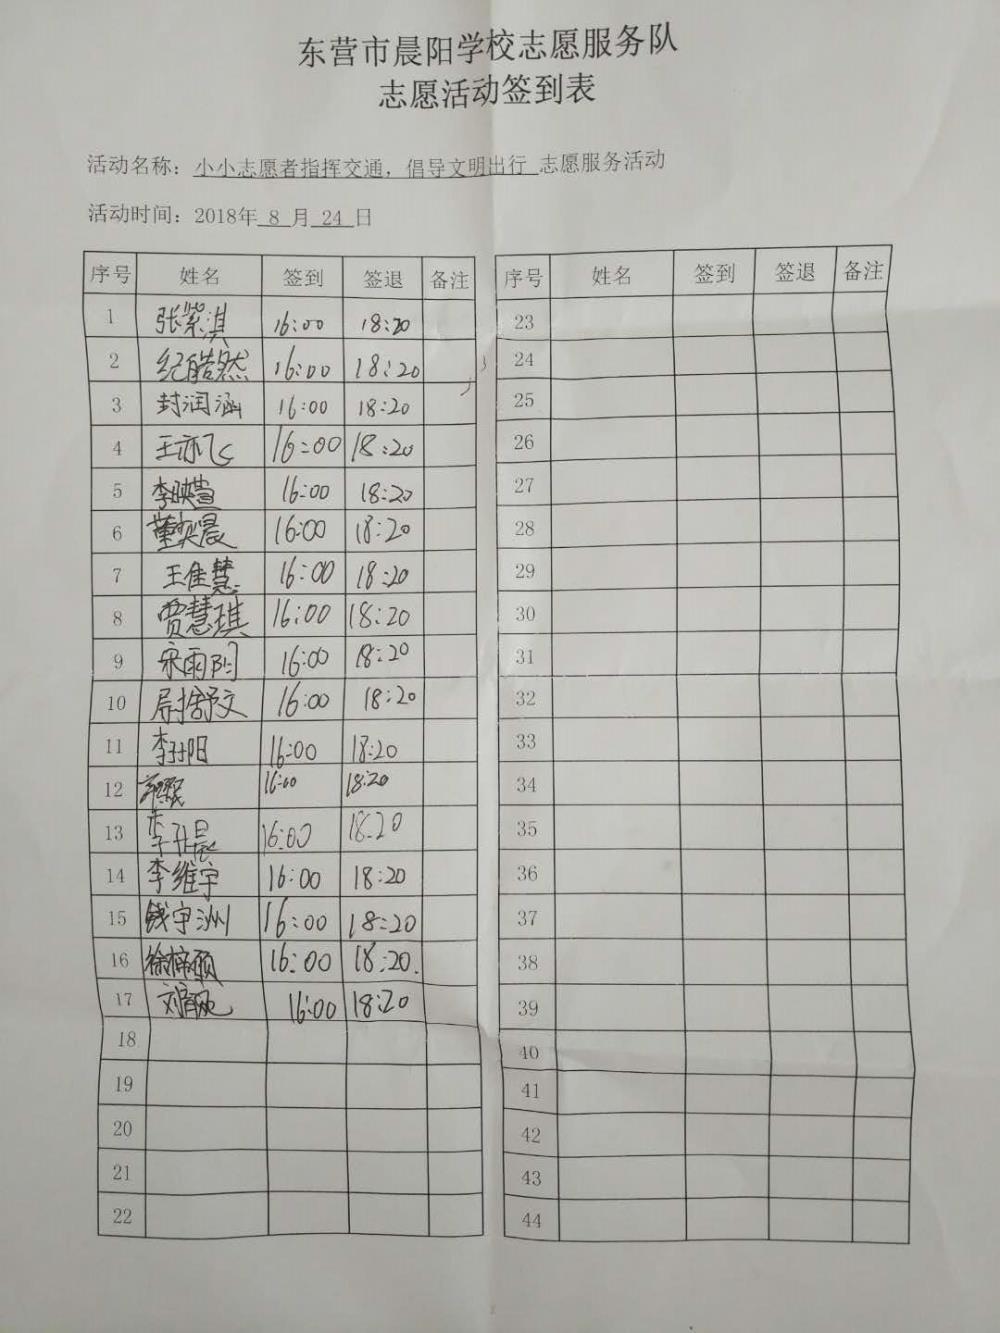 东营市晨阳学校志愿服务队
志愿活动签到表
活动名称：小小志愿者指挥交通，倡导文明出行 志愿服务活动
活动时间：2018年 8 月 24 日
序号 姓名 签到 签退 备注
1 张紫淇 16:00 18:20
2 纪皓然 16:00 18:20
3 封润涵 16:00 18:20
4 王亦飞 16:00 18:20
5 李映萱 16:00 18:20
6 董奕晨 16:00 18:20
7 王佳慧 16:00 18:20
8 贾慧琪 16:00 18:20
9 宋雨 16:00 18:20
10 16:00 18:20
11 李 阳 16:00 18:20
12 16:00 18:20
13 李 晨 16:00 18:20
14 李维宇 16:00 18:20
15 钱宇洲 16:00 18:20
16 徐梓硕 16:00 18:20
17 刘 16:00 18:20
18
19
20
21
22
序号 姓名 签到 签退 备注
23
24
25
26
27
28
29
30
31
32
33
34
35
36
37
38
39
40
41
42
43
44